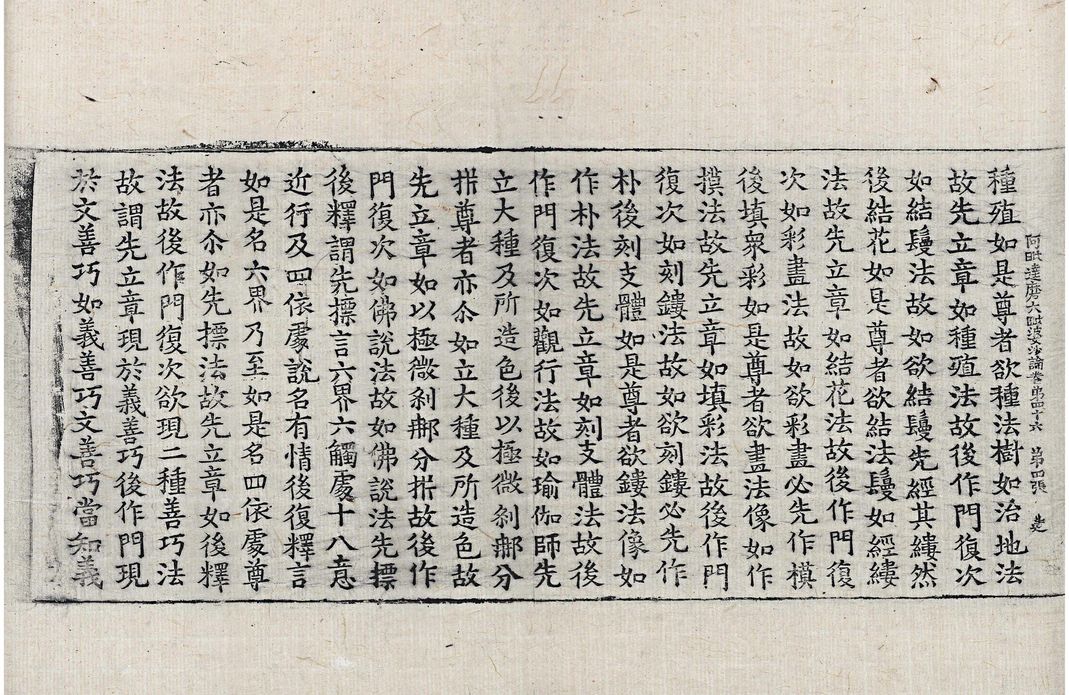 阿毗達磨大毗婆沙論卷第四十六 第四張
種殖如是尊者欲種法樹如治地法
故先立章如種殖法故後作門復次
如結鬘法故如欲結鬘先經其縷然
後結花如是尊者欲結法鬘如經縷
法故先立章如結花法故後作門復
次如彩畫法故如欲彩畫必先作模
後填衆彩如是尊者欲畫法像如作
摸法故先立章如填彩法故後作門
復次如刻鏤法故如欲刻鏤必先作
朴後刻支體如是尊者欲鏤法像如
作朴法故先立章如刻支體法故後
作門復次如觀行法故如瑜伽師先
立大種及所造色後以極微刹那分
析尊者亦尒如立大種及所造色故
先立章如以極微刹那分析故後作
門復次如佛說法故如佛說法先摽
後釋謂先摽言六界六觸處十八意
近行及四依處說名有情後復釋言
如是名六界乃至如是名四依處尊
者亦尒如先摽法故先立章如後釋
法故後作門復次欲現二種善巧法
故謂先立章現於義善巧後作門現
於文善巧如義善巧文善巧當知義